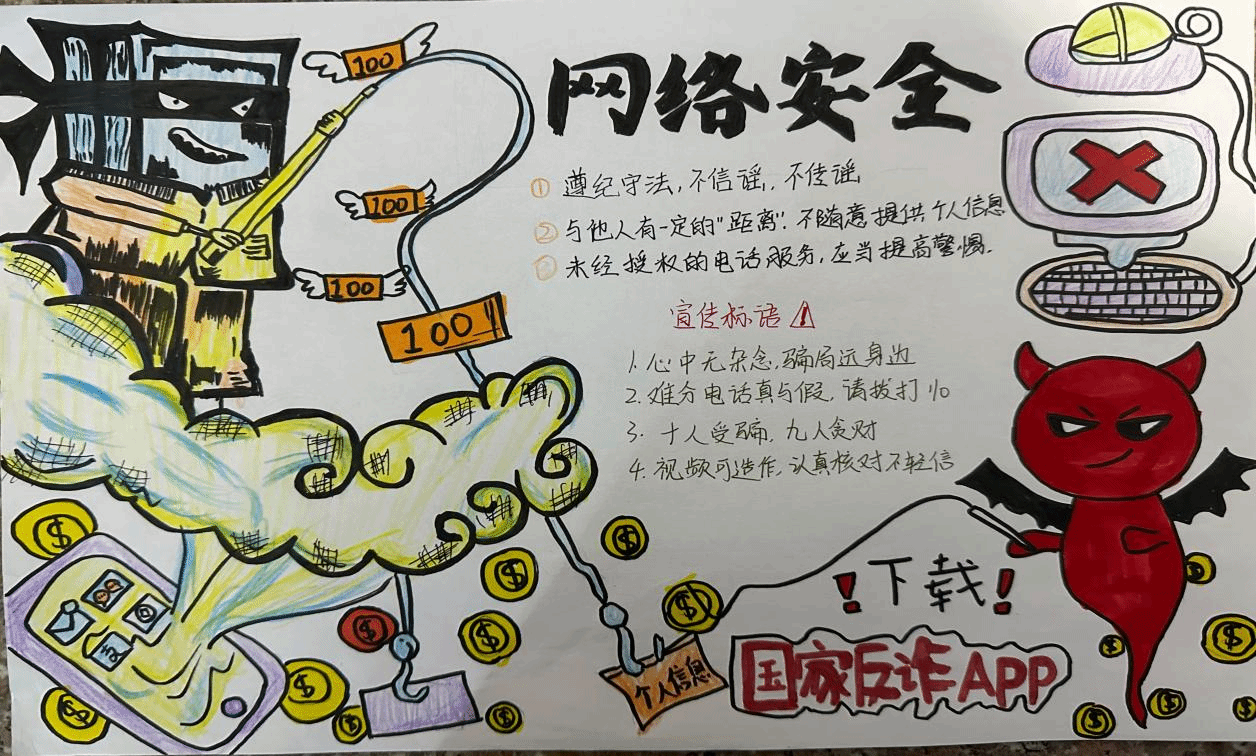 100
网络安全
① 遵纪守法,不信谣,不传谣
100
② 与他人有一定的"距离".不随意提供个人信息
未经授权的电话服务,应当提高警惕.
100
100
宣传标语
1. 心中无杂念,骗局远身边
2. 难分电话真与假,请拨打110
3. 十人受骗,九人贪财
4. 视频可造作,认真核对不轻信
!下载!
个人信息
国家反诈APP